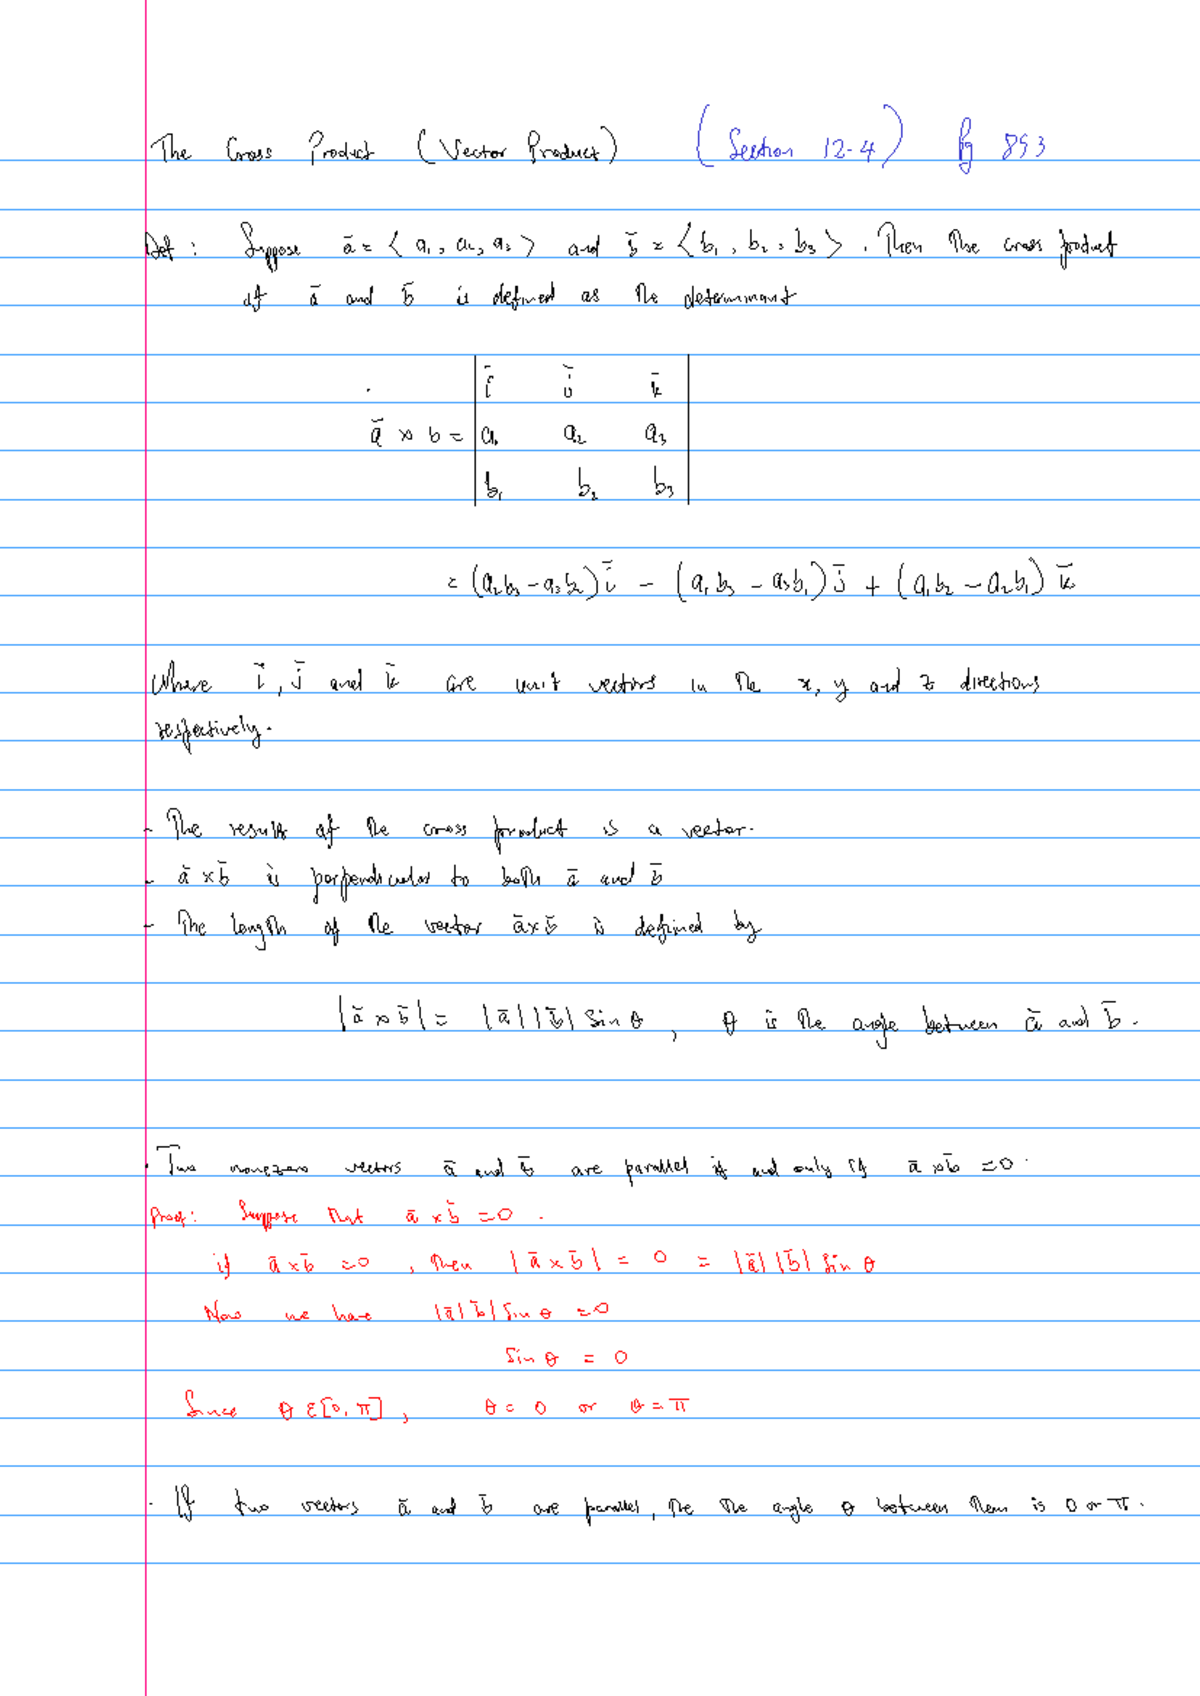 The Cross Product (Vector Product) (Section 12-4) Pg 853
Def : Suppose ā = ⟨ a₁, a₂, a₃ ⟩ and b̄ = ⟨ b₁, b₂, b₃ ⟩. Then the cross product
of ā and b̄ is defined as the determinant
ī j̄ k̄
ā × b = a₁ a₂ a₃
b₁ b₂ b₃
= (a₂b₃ − a₃b₂) ī − (a₁b₃ − a₃b₁) j̄ + (a₁b₂ − a₂b₁) k̄
Where ī, j̄ and k̄ are unit vectors in the x, y and z directions
respectively.
- The results of the cross product is a vector.
- ā × b̄ is perpendicular to both ā and b̄
- The length of the vector ā×b̄ is defined by
|ā × b̄| = |ā| |b̄| sin θ , θ is the angle between ā and b̄.
· Two nonezero vectors ā and b̄ are parallel if and only if ā × b̄ = 0.
Proof: Suppose that ā × b̄ = 0.
if ā × b̄ = 0 , then |ā × b̄| = 0 = |ā| |b̄| sin θ
Now we have |ā| |b̄| sin θ = 0
Sin θ = 0
Since θ ε [0, π] , θ = 0 or θ = π
· If two vectors ā and b̄ are parallel, the the angle θ between them is 0 or π.